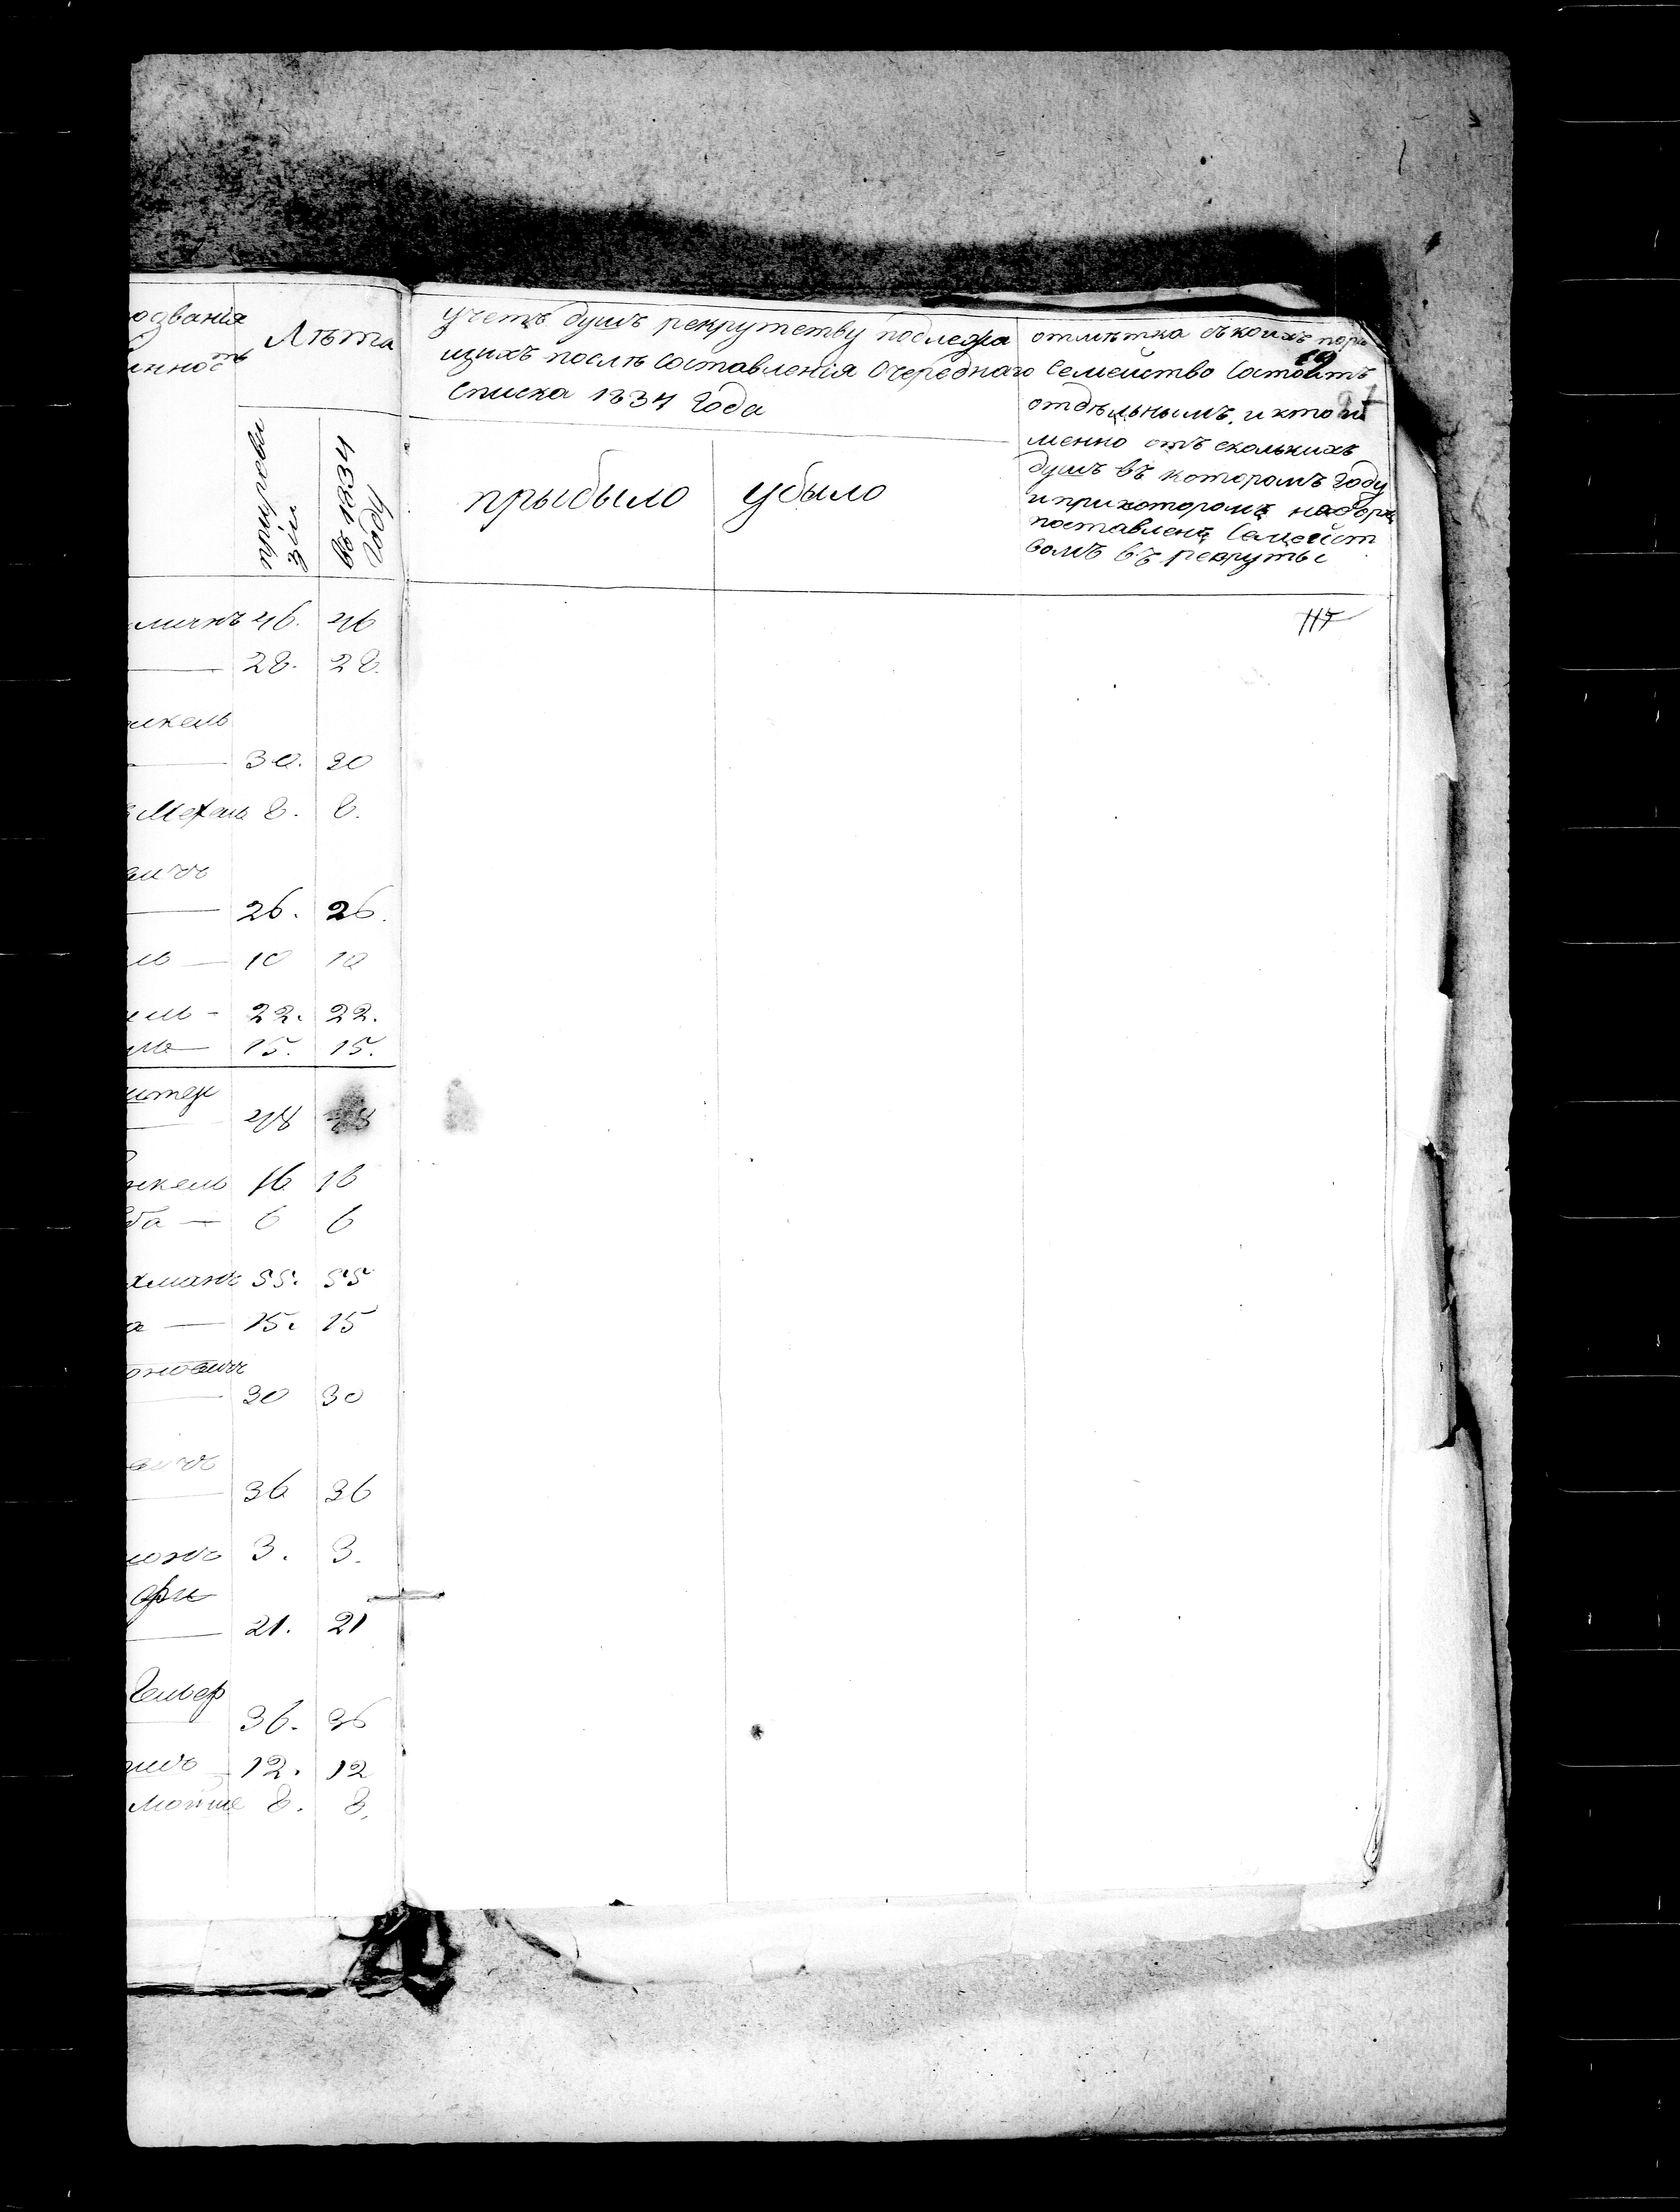 озванія
нность
Лѣта
приреви
зіи
въ 1834
году
учетъ душъ рекрутству подлежа
щихъ послѣ составленія Очереднаго
Списка 1834 года
прыбыло
убыло
отмѣтка съ коихъ поръ
Семейство Состоитъ
отдѣльнымъ, и кто и
менно отъ сколькихъ
душъ въ которомъ году
и прикоторомъ наборѣ
поставленъ Семейст
вомъ въ рекруты
46. 46
28. 28.
нкель
30. 30
8. 8.
вичъ
26. 26.
ль — 10 10
ель - 22. 22.
15. 15.
штеи
48 48
нкель 16 16
6 6
хманъ 55. 55
а — 15. 15
оновичъ
30 30
вичъ
36 36
3. 3.
21. 21
36. 36
12. 12
мойше 8. 8.